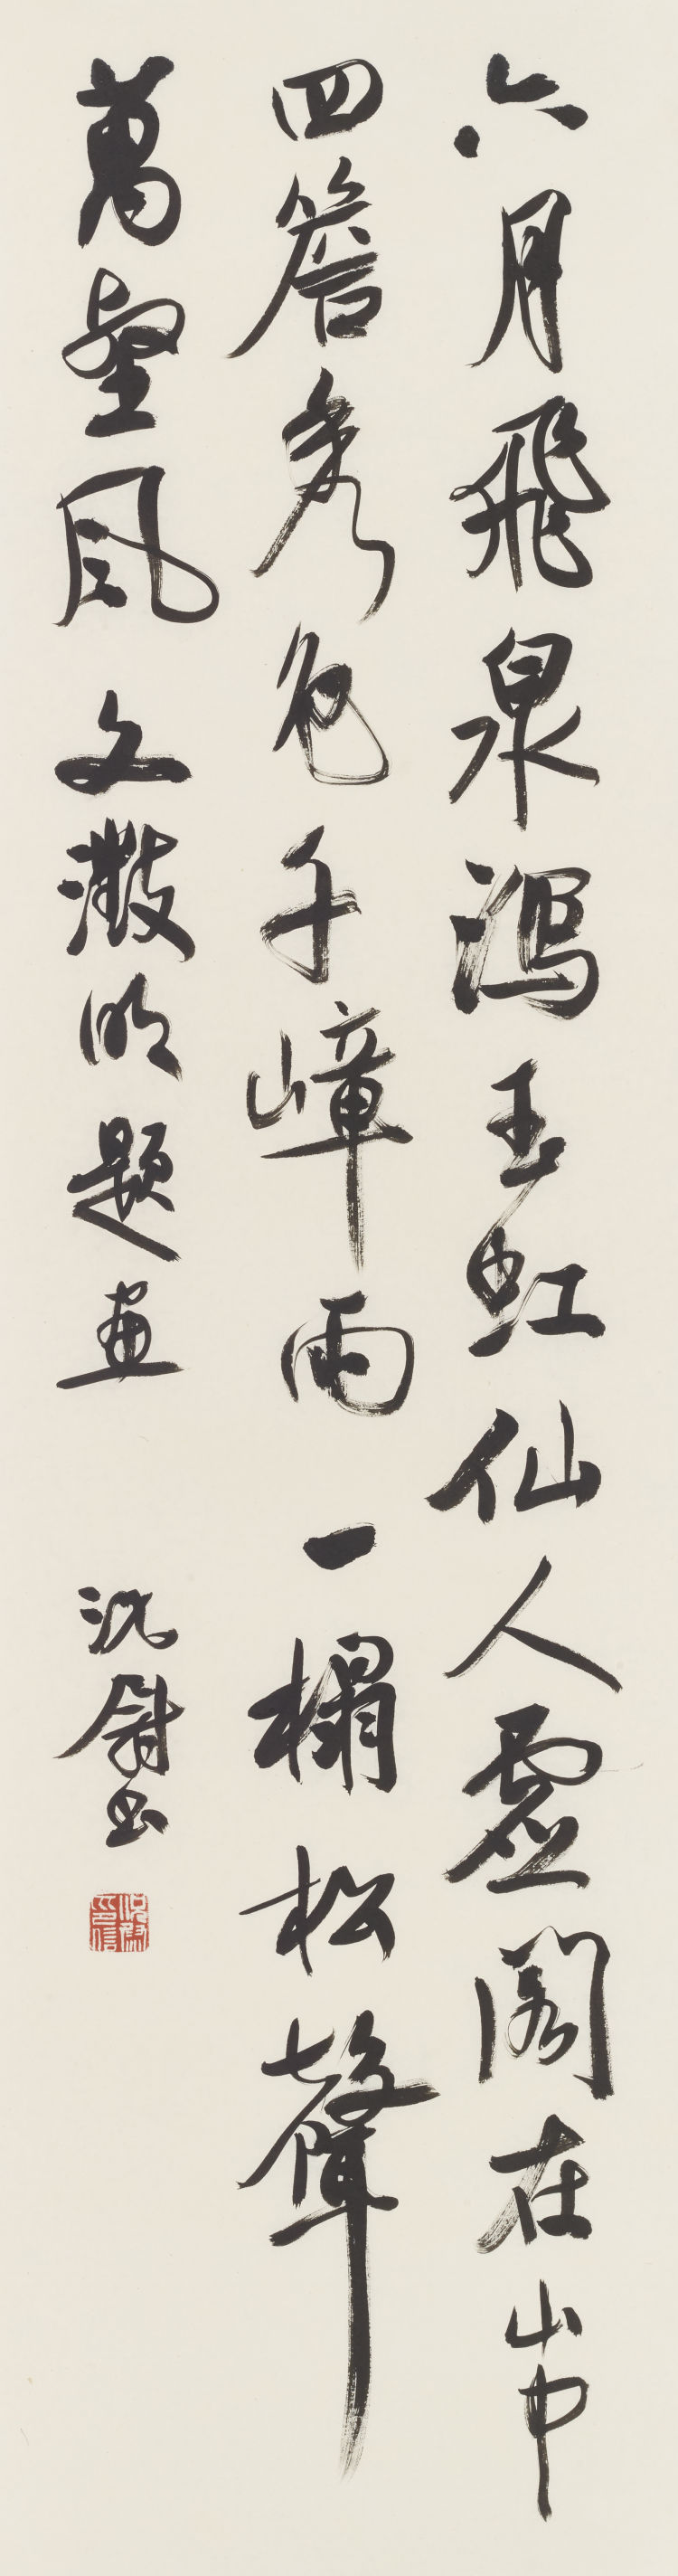 六月飛泉瀉玉虹仙人虛閣在山中
四簷秀色千嶂雨一榻松聲
萬壑風 文徵明題畫
沈尉書